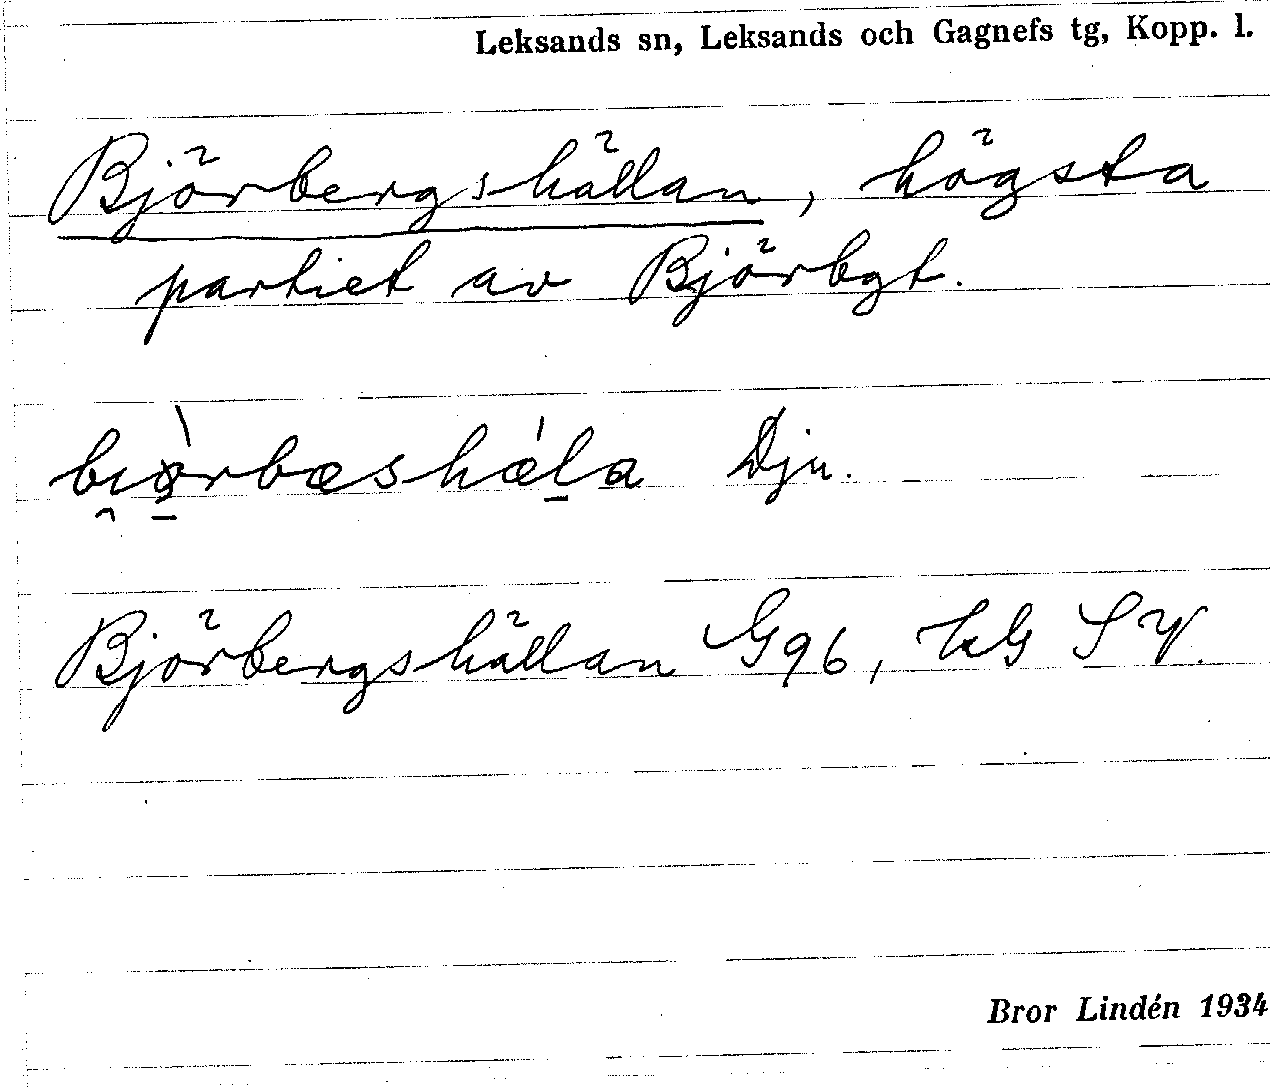 Leksands sn, Leksands och Gagnefs tg, Kopp. l.
Björbergshällan, högsta
partiet av Björbgt.
Dju.
Björbergshällan G96, LG SV.
Bror Lindén 1934